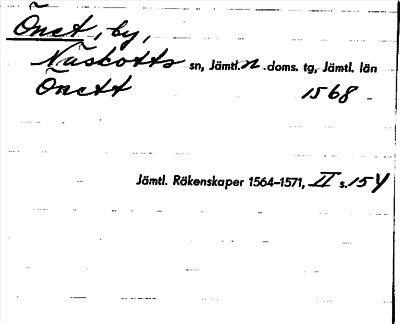 Önet, by,
Näskotts sn, Jämtl. n .doms. tg, Jämtl. län
Önett 1568
Jämtl. Räkenskaper 1564–1571, II s. 154